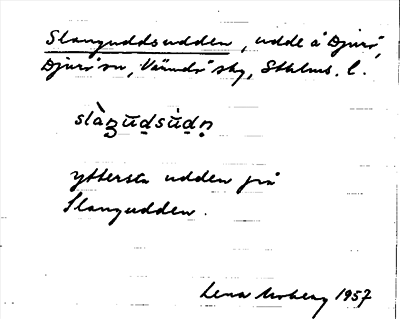 Slanguddsudden, udde å Djurö,
Djurö sn, Värmdö skg, Sthlms. l.
slàŋūdsùdn̥
yttersta udden på
Slangudden.
Lena Moberg 1957